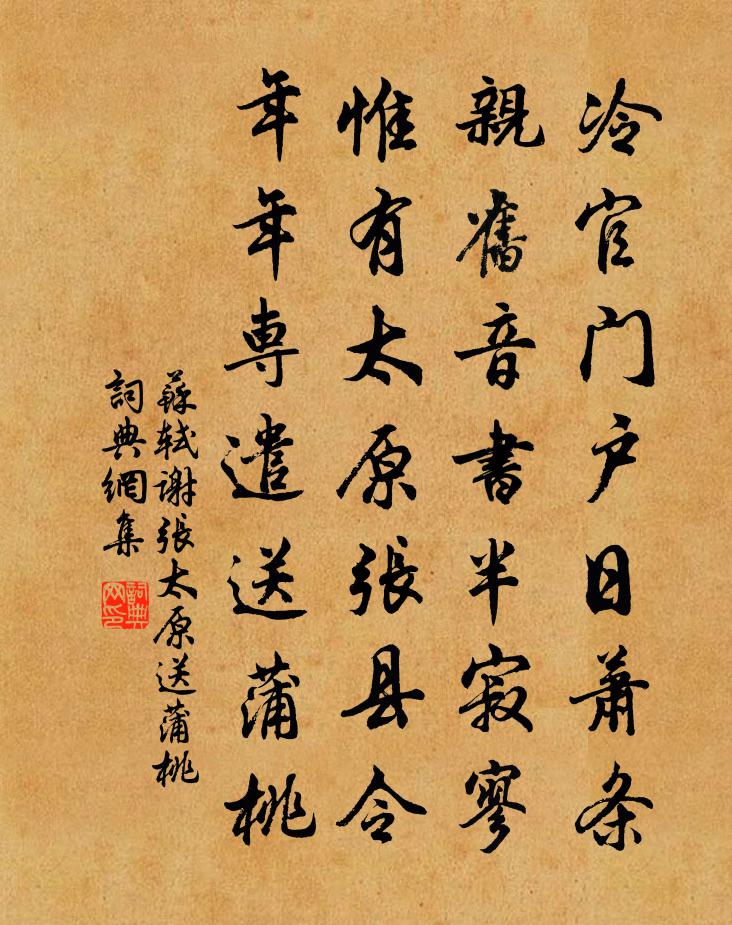 冷官門户日蕭条
親舊音書半寂寥
惟有太原張县令
年年専遣送蒲桃
蘇軾谢張太原送蒲桃
詞典網集
詞典
网印